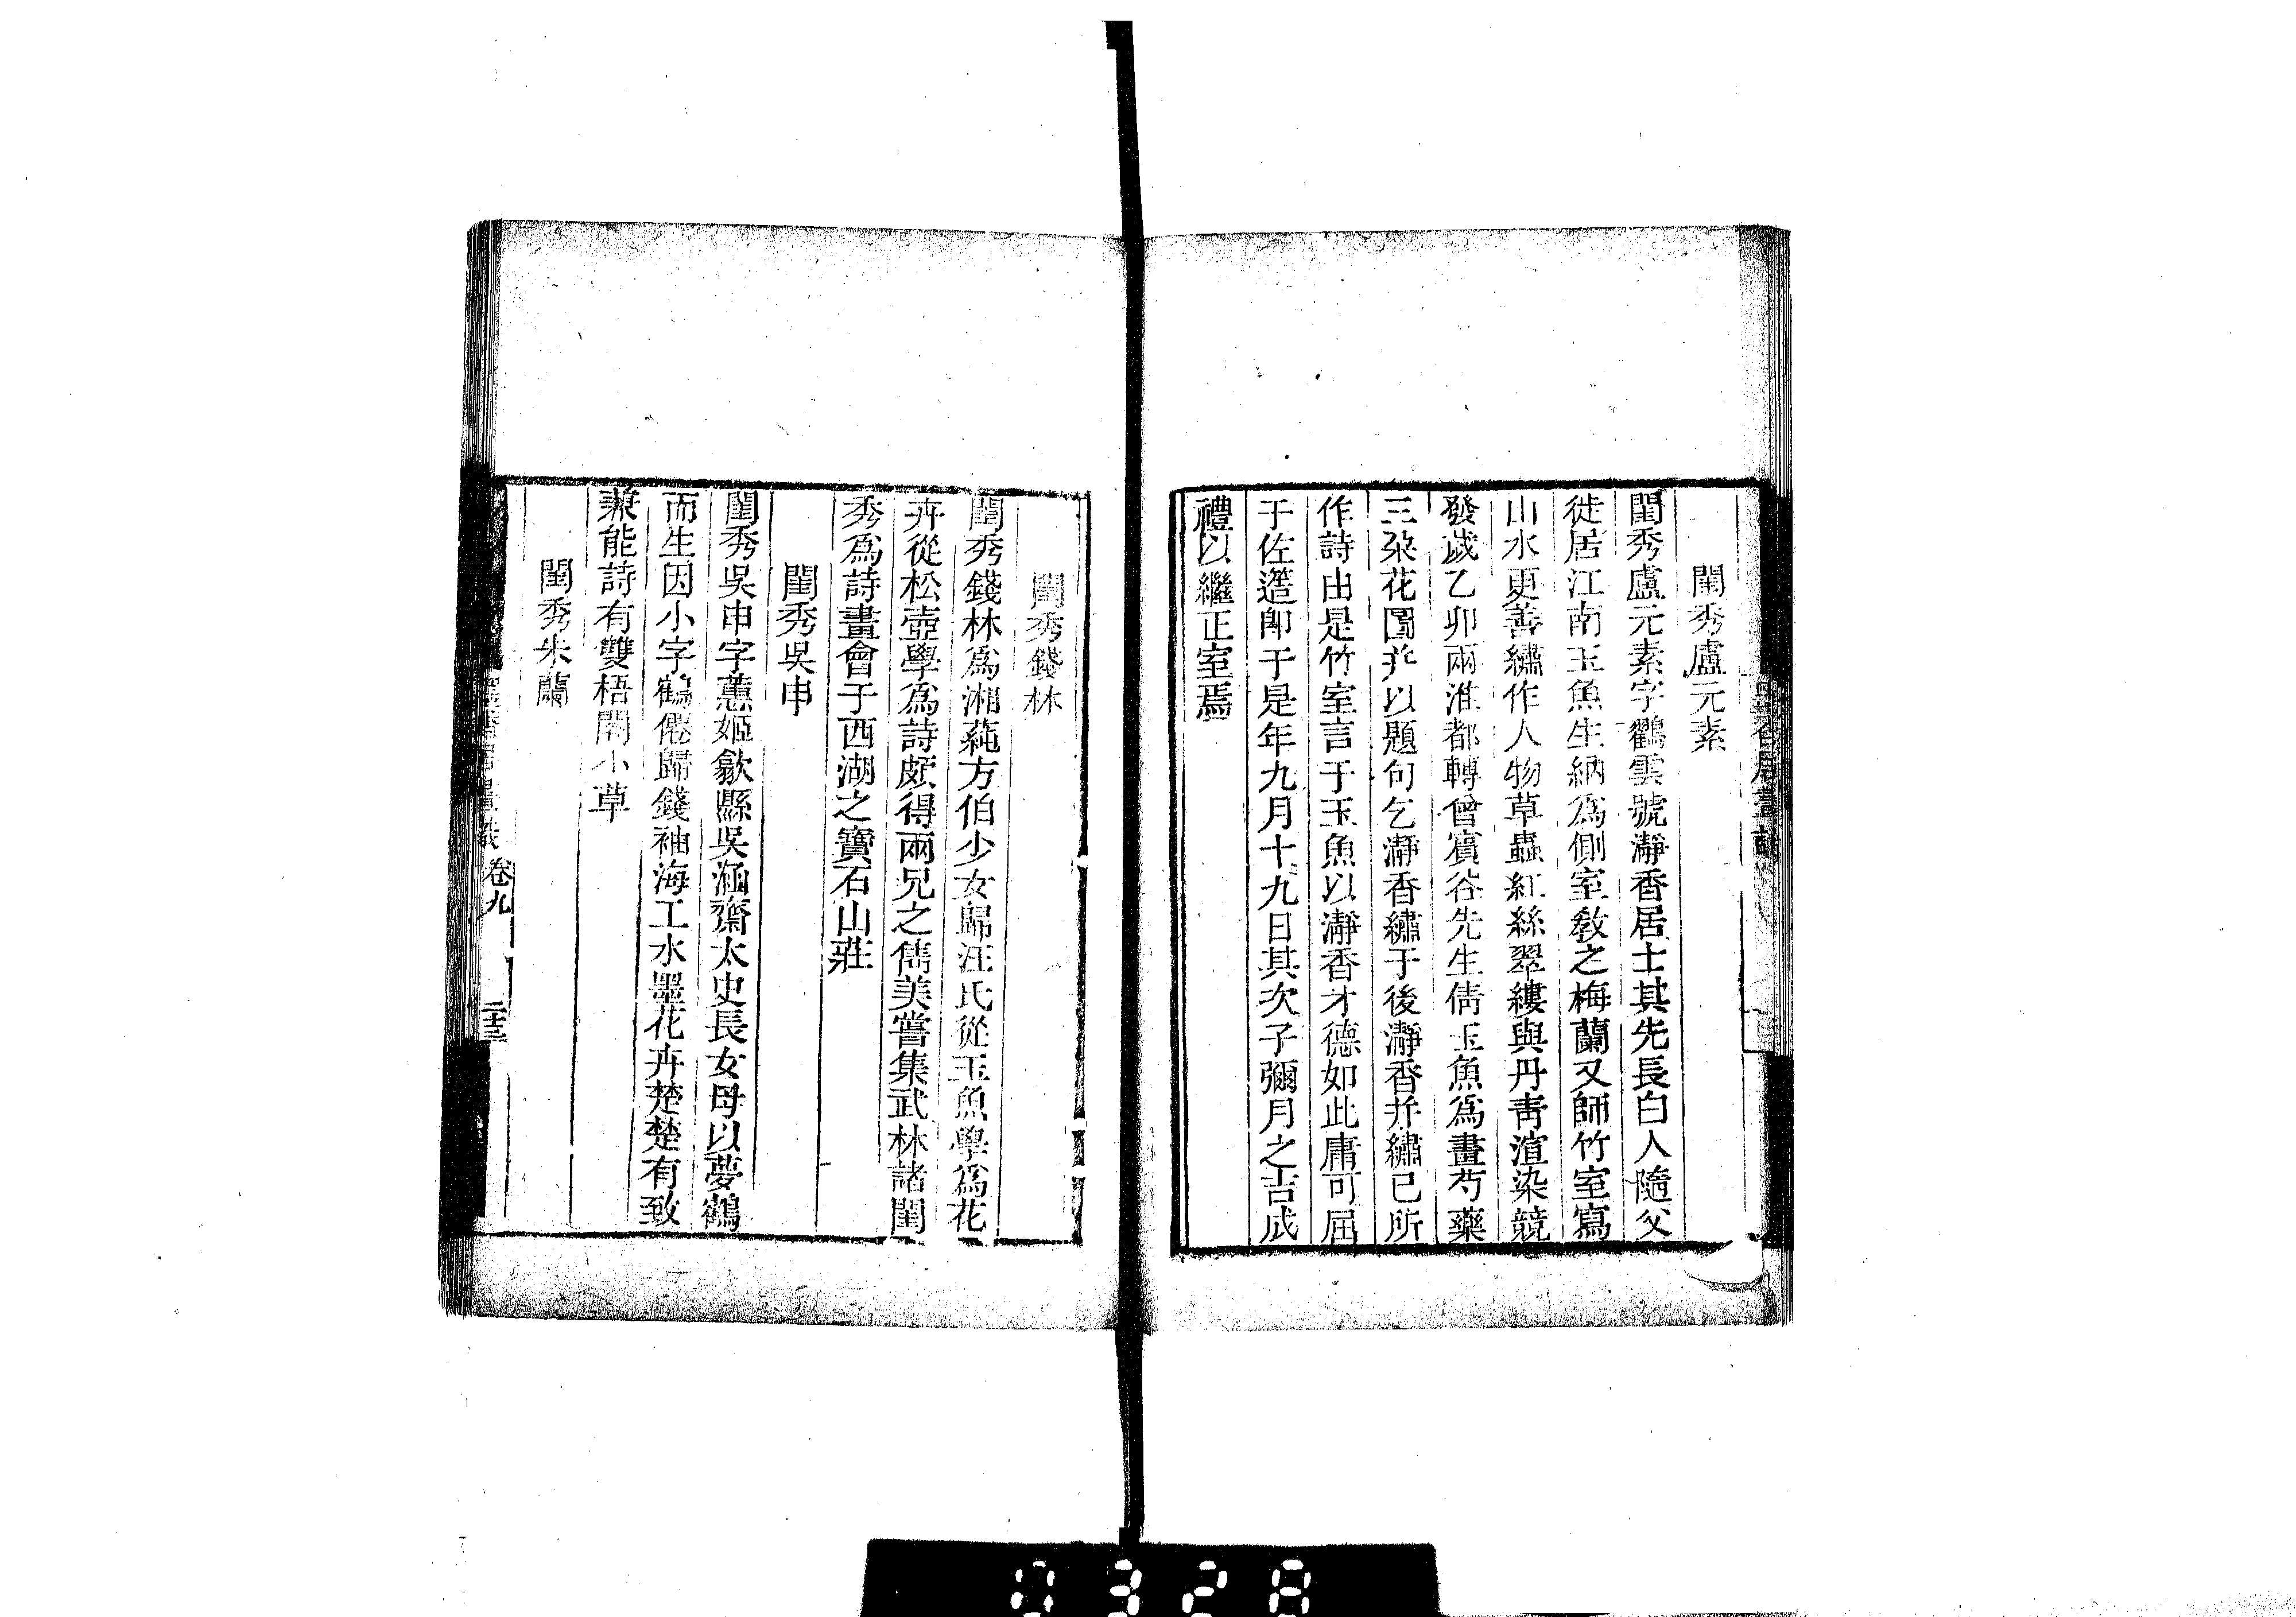 閨秀盧元素
閨秀盧元素字鸛雲號瀞香居士其先長白人隨父
徙居江南玉魚生納爲側室敎之梅蘭又師竹室寫
山水更善繡作人物草蟲紅絲翠縷與丹靑渲染競
發歲乙卯兩淮都轉曾賓谷先生倩玉魚爲畫芍藥
三朶花圖并以題句乞瀞香繡于後瀞香并繡已所
作詩由是竹室言于玉魚以瀞香才德如此庸可屈
于佐簉卽于是年九月十九日其次子彌月之吉成
禮以繼正室焉
閨秀錢林
閨秀錢林爲湘蒓方伯少女歸汪氏從玉魚學爲花
卉從松壺學爲詩頗得兩兄之儁美嘗集武林諸閨
秀爲詩畫會于西湖之寶石山莊
閨秀吳申
閨秀吳申字蕙姬歙縣吳涵齋太史長女母以夢鶴
而生因小字鶴僊歸錢袖海工水墨花卉楚楚有致
兼能詩有雙梧閣小草
閨秀朱蘭
墨香居畫識 卷九 二十三